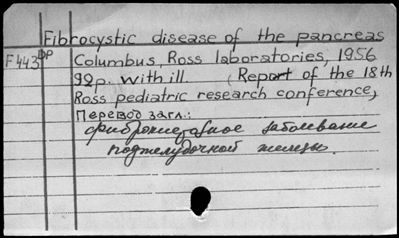 Fibrocystic disease of the pancreas
F443 фр Columbus, Ross laboratories, 1956
99p. with ill. (Report of the 18th
Ross pediatric research conference,
Перевод загл.:
заболевание
поджелудочной железы.